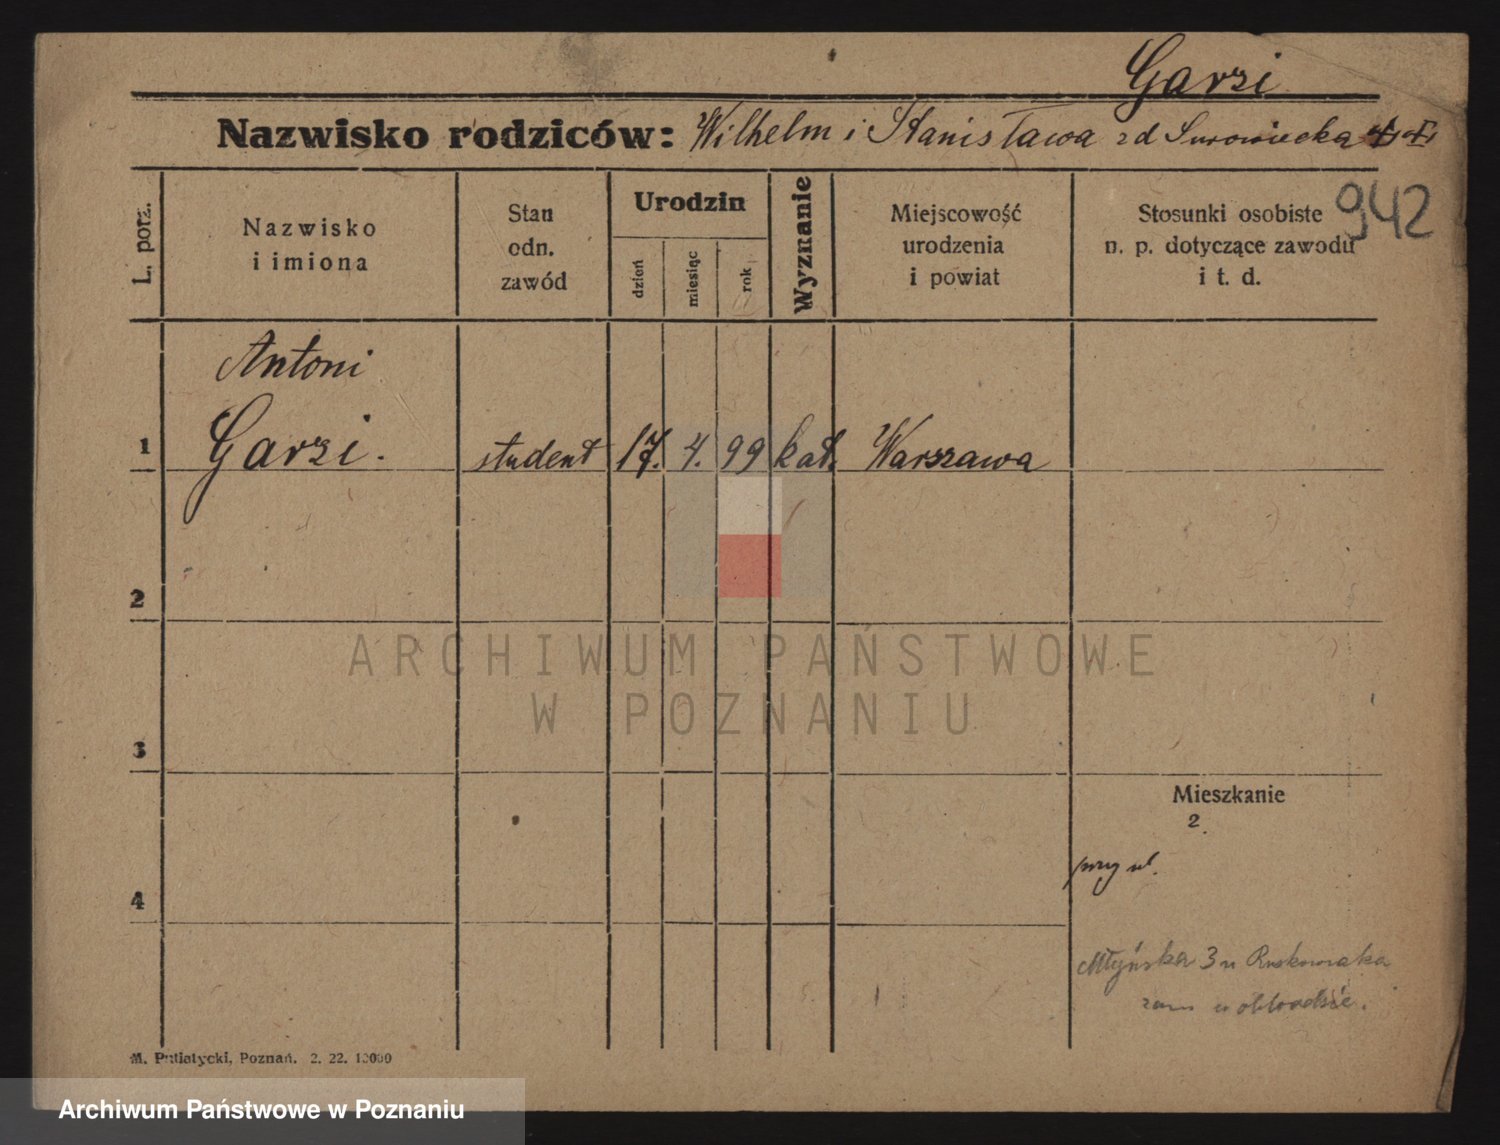 Garzi
Nazwisko rodziców: Wilhelm i Stanisława zd Surowiecka
942
L. porz.
Nazwisko
i imiona
Stan
odn.
zawód
Urodzin
dzień
miesiąc
rok
Wyznanie
Miejscowość
urodzenia
i powiat
Stosunki osobiste
n. p. dotyczące zawodu
i t. d.
Antoni
1 Garzi. student 17. 4. 99 kat. Warszawa
2
ARCHIWUM PAŃSTWOWE
W POZNANIU
3
Mieszkanie
2
przy ul.
4
Młyńska 3 u Ruskowiaka
zam
M. Putiatycki, Poznań. 2. 22. 10000
Archiwum Państwowe w Poznaniu